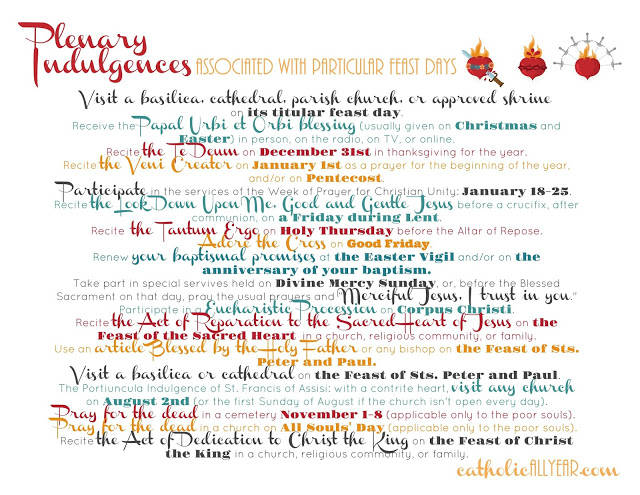 Plenary
Indulgences ASSOCIATED WITH PARTICULAR FEAST DAYS
Visit a basilica, cathedral, parish church, or approved shrine
on its titular feast day.
Receive the Papal Urbi et Orbi blessing (usually given on Christmas and
Easter) in person, on the radio, on TV, or online.
Recite the Te Deum on December 31st in thanksgiving for the year.
Recite the Veni Creator on January 1st as a prayer for the beginning of the year,
and/or on Pentecost.
Participate in the services of the Week of Prayer for Christian Unity: January 18-25.
Recite the Look Down Upon Me, Good and Gentle Jesus before a crucifix, after
communion, on a Friday during Lent.
Recite the Tantum Ergo on Holy Thursday before the Altar of Repose.
Adore the Cross on Good Friday.
Renew your baptismal promises at the Easter Vigil and/or on the
anniversary of your baptism.
Take part in special services held on Divine Mercy Sunday, or, before the Blessed
Sacrament on that day, pray the usual prayers and "Merciful Jesus, I trust in you."
Participate in a Eucharistic Procession on Corpus Christi.
Recite the Act of Reparation to the Sacred Heart of Jesus on the
Feast of the Sacred Heart in a church, religious community, or family.
Use an article Blessed by the Holy Father or any bishop on the Feast of Sts.
Peter and Paul.
Visit a basilica or cathedral on the Feast of Sts. Peter and Paul.
The Portiuncula Indulgence of St. Francis of Assisi: with a contrite heart, visit any church
on August 2nd (or the first Sunday of August if the church isn't open every day).
Pray for the dead in a cemetery November 1-8 (applicable only to the poor souls).
Pray for the dead in a church on All Souls' Day (applicable only to the poor souls).
Recite the Act of Dedication to Christ the King on the Feast of Christ
the King in a church, religious community, or family.
catholicALLYEAR.com